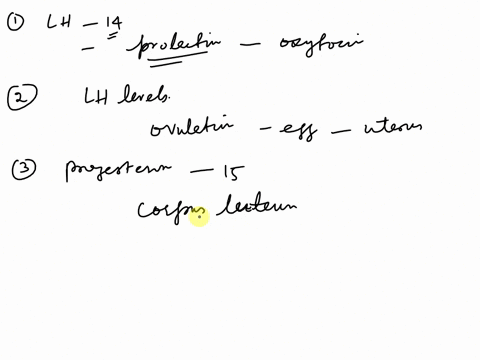 ① LH — 14
— prolectin — oxytocin
② LH levels.
ovuletin — egg — uterus
③ progesteron — 15
Corpus leuteum